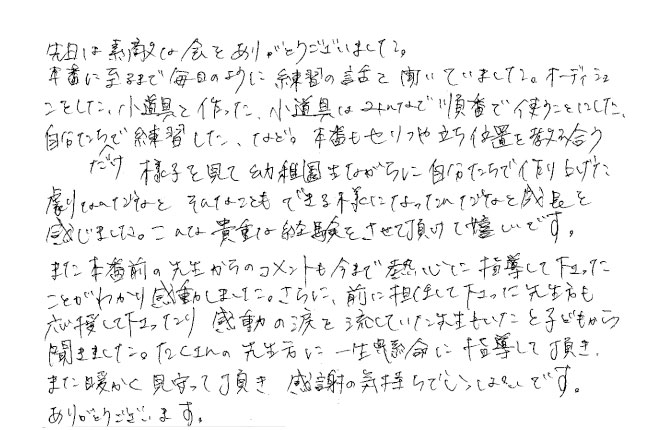 先日は素敵な会をありがとうございました。
本番に至るまで毎日のように練習の話を聞いていました。オーディショ
ンをした、小道具を作った、小道具はみんなで順番で使うことにした、
自分たちだけで練習した、など。本番もセリフや立ち位置を教え合う
様子を見て幼稚園生ながらに自分たちで作り上げた
劇なんだなと そんなことも できる様になったんだなと成長を
感じました。こんな貴重な経験をさせて頂けて嬉しいです。
また本番前の先生からのコメントも今まで熱心に指導して下さった
ことがわかり感動しました。さらに、前に担任して下さった先生方も
応援して下さったり 感動の涙を流していた先生もいたと子どもから
聞きました。たくさんの先生方に一生懸命に指導して頂き、
また暖かく見守って頂き 感謝の気持ちでいっぱいです。
ありがとうございます。